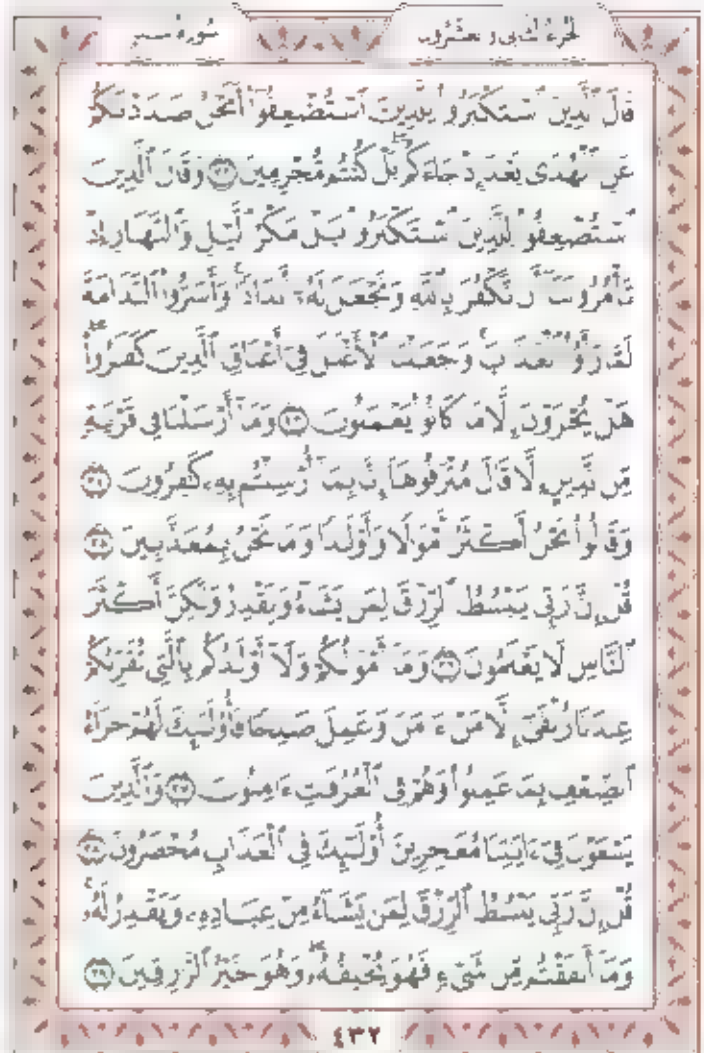 الجزء الثاني والعشرون
سورة سبإ
قَالَ ٱلَّذِينَ ٱسْتَكْبَرُوا۟ لِلَّذِينَ ٱسْتُضْعِفُوٓا۟ أَنَحْنُ صَدَدْنَٰكُمْ
عَنِ ٱلْهُدَىٰ بَعْدَ إِذْ جَآءَكُم ۖ بَلْ كُنتُم مُّجْرِمِينَ ٣٢ وَقَالَ ٱلَّذِينَ
ٱسْتُضْعِفُوا۟ لِلَّذِينَ ٱسْتَكْبَرُوا۟ بَلْ مَكْرُ ٱلَّيْلِ وَٱلنَّهَارِ إِذْ
تَأْمُرُونَنَآ أَن نَّكْفُرَ بِٱللَّهِ وَنَجْعَلَ لَهُۥٓ أَندَادًا ۚ وَأَسَرُّوا۟ ٱلنَّدَامَةَ
لَمَّا رَأَوُا۟ ٱلْعَذَابَ وَجَعَلْنَا ٱلْأَغْلَٰلَ فِىٓ أَعْنَاقِ ٱلَّذِينَ كَفَرُوا۟ ۚ
هَلْ يُجْزَوْنَ إِلَّا مَا كَانُوا۟ يَعْمَلُونَ ٣٣ وَمَآ أَرْسَلْنَا فِى قَرْيَةٍ
مِّن نَّذِيرٍ إِلَّا قَالَ مُتْرَفُوهَآ إِنَّا بِمَآ أُرْسِلْتُم بِهِۦ كَٰفِرُونَ ٣٤
وَقَالُوا۟ نَحْنُ أَكْثَرُ أَمْوَٰلًا وَأَوْلَٰدًا وَمَا نَحْنُ بِمُعَذَّبِينَ ٣٥
قُلْ إِنَّ رَبِّى يَبْسُطُ ٱلرِّزْقَ لِمَن يَشَآءُ وَيَقْدِرُ وَلَٰكِنَّ أَكْثَرَ
ٱلنَّاسِ لَا يَعْلَمُونَ ٣٦ وَمَآ أَمْوَٰلُكُمْ وَلَآ أَوْلَٰدُكُم بِٱلَّتِى تُقَرِّبُكُمْ
عِندَنَا زُلْفَىٰٓ إِلَّا مَنْ ءَامَنَ وَعَمِلَ صَٰلِحًا فَأُو۟لَٰٓئِكَ لَهُمْ جَزَآءُ
ٱلضِّعْفِ بِمَا عَمِلُوا۟ وَهُمْ فِى ٱلْغُرُفَٰتِ ءَامِنُونَ ٣٧ وَٱلَّذِينَ
يَسْعَوْنَ فِىٓ ءَايَٰتِنَا مُعَٰجِزِينَ أُو۟لَٰٓئِكَ فِى ٱلْعَذَابِ مُحْضَرُونَ ٣٨
قُلْ إِنَّ رَبِّى يَبْسُطُ ٱلرِّزْقَ لِمَن يَشَآءُ مِنْ عِبَادِهِۦ وَيَقْدِرُ لَهُۥ ۚ
وَمَآ أَنفَقْتُم مِّن شَىْءٍ فَهُوَ يُخْلِفُهُۥ ۖ وَهُوَ خَيْرُ ٱلرَّٰزِقِينَ ٣٩
٤٣٢